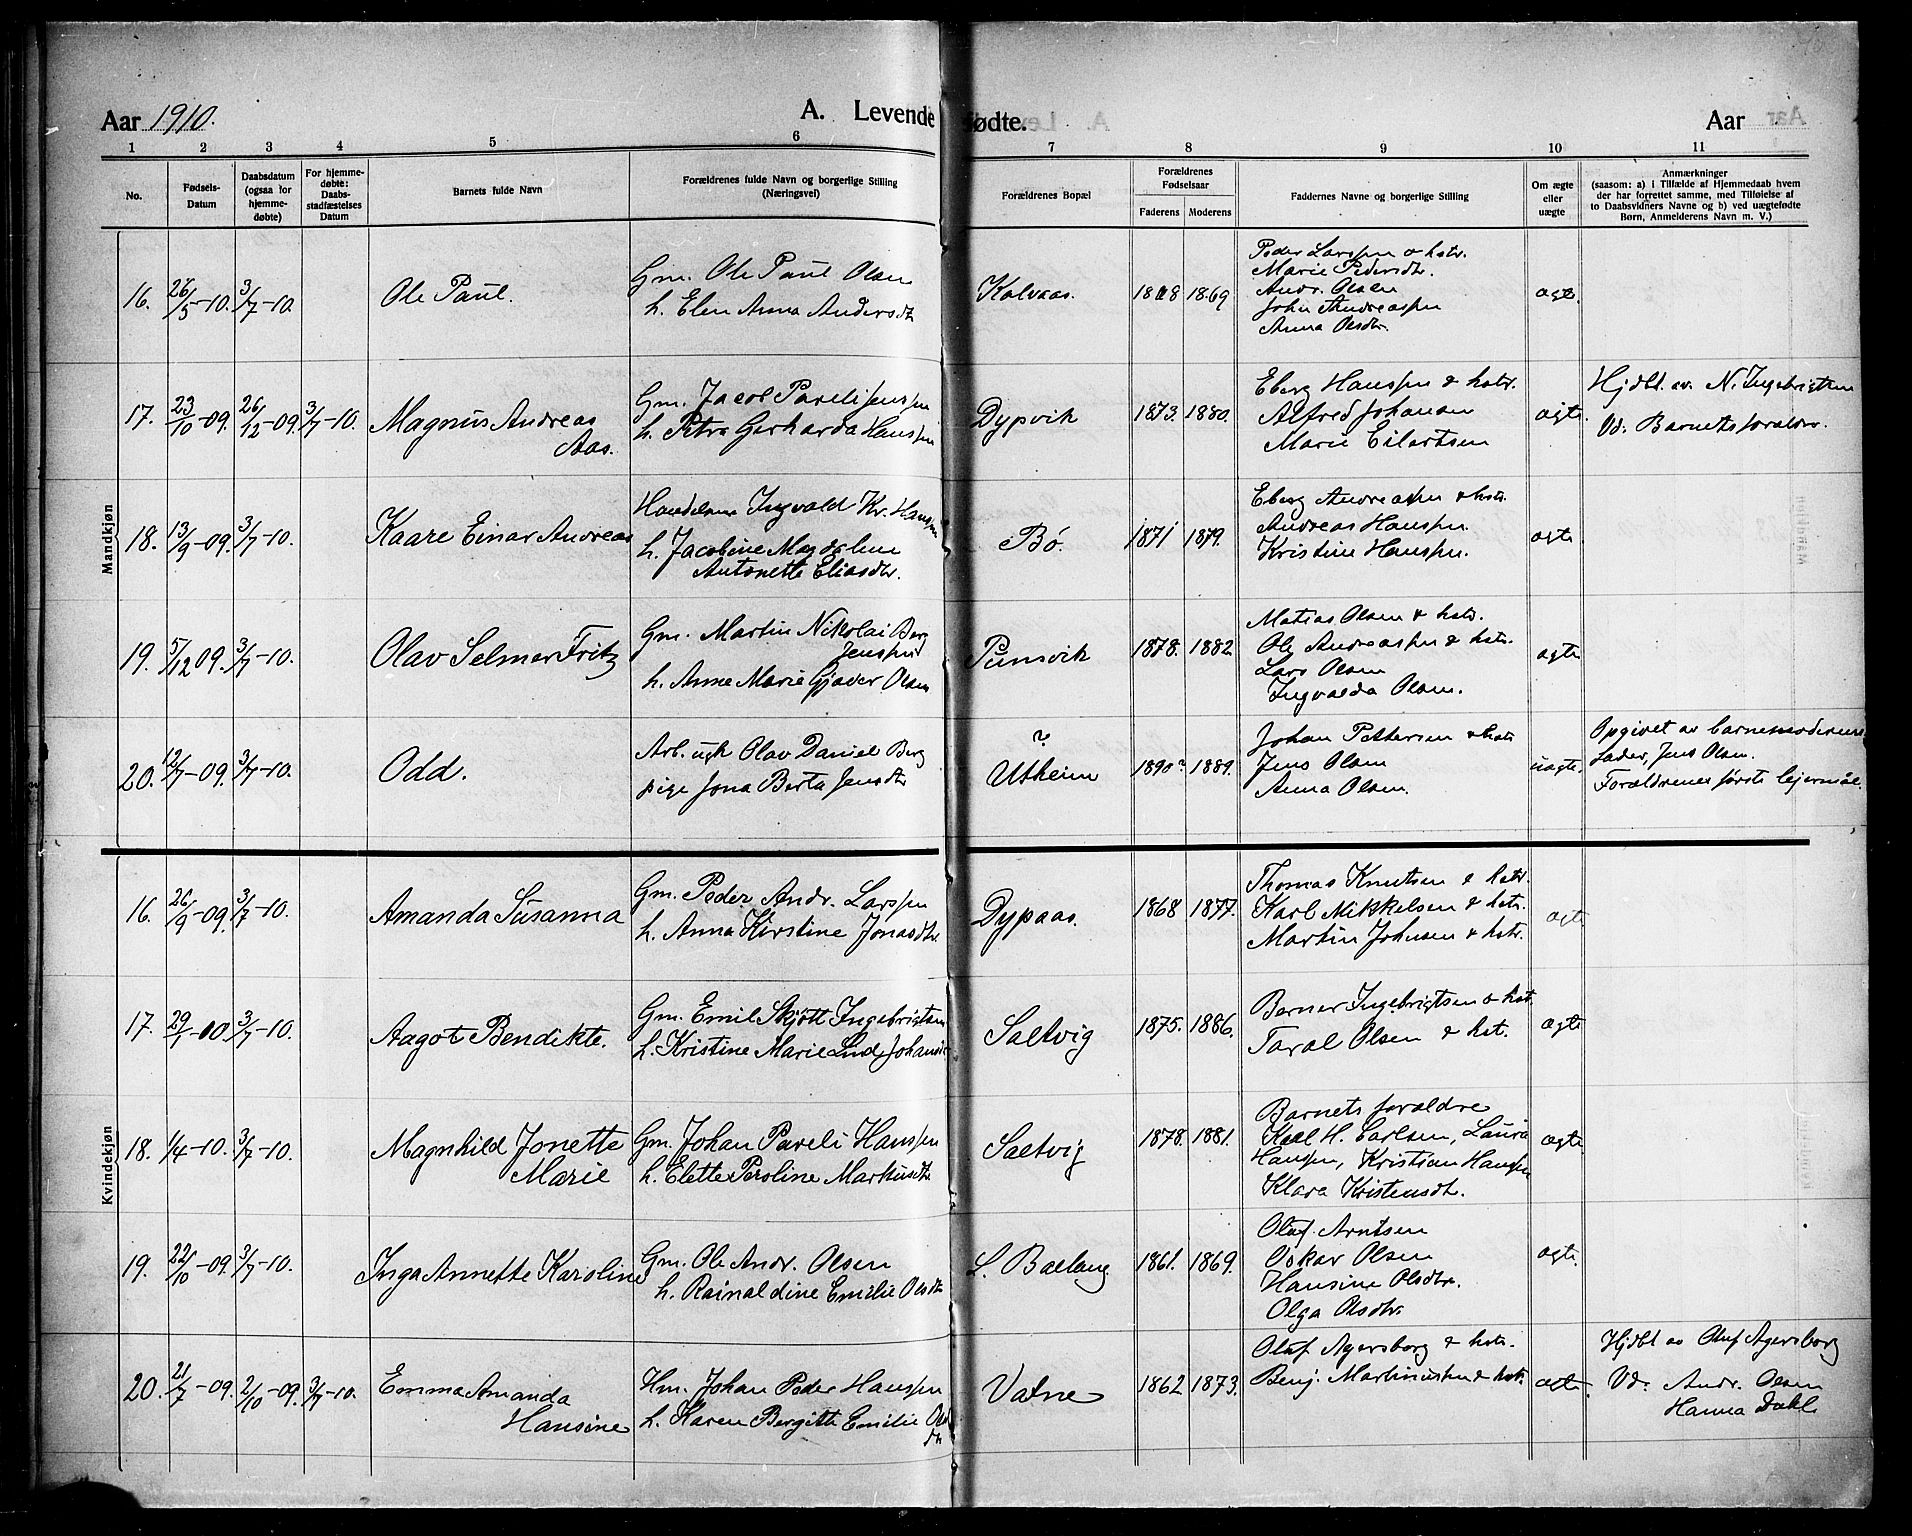 Aar 1910.
A. Levende fødte.
Aar
1 2 3 4 5 6 7 8 9 10 11
No.
Fødsels-
Datum
Daabsdatum
(ogsaa for
hjemme-
døbte)
For hjemme-
døbte:
Daabs-
stadfæstelses
Datum
Barnets fulde Navn
Forældrenes fulde Navn og borgerlige Stilling
(Næringsvei)
Forældrenes Bopæl
Forældrenes
Fødselsaar
Faderens Moderens
Faddernes Navne og borgerlige Stilling
Om ægte
eller
uægte
Anmærkninger
(saasom: a) i Tilfælde af Hjemmedaab hvem
der har forrettet samme, med Tilføielse af
to Daabsvidners Navne og b) ved uægtefødte
Børn, Anmelderens Navn m. V.)
Mandkjøn
16. 26/5-10. 3/7-10.
Ole Paul.
Gm. Ole Paul Olsen
h. Elen Anna Andersdtr
Kolvaas.
1869
Peder Larssen & hstr.
Marie Pedersdtr.
Andr. Olsen
John Andreassen
Anna Olsdtr.
ægte
17. 23/10-09. 26/12-09. 3/7-10.
Magnus Andreas
Aas.
Gm. Jacob Pareli Jenssen
h. Petra Gerharda Hanssen
Dypvik
1873. 1880.
Eberg Hanssen & hstr.
Alfred Johansen
Marie Eilertsen
ægte
Hjdbt. av N. Ingebrigtsen
Vd. Barnets forældre.
18. 13/9-09. 3/7-10.
Kaare Einar Andreas
Handelsm. Ingvald Kr. Hanssen
h. Jacobine Magdalene
Antonette Eliasdtr.
Bø.
1871 1879.
Eberg Andreassen & hstr.
Andreas Hanssen
Kristine Hanssen.
ægte
19. 5/12 09. 3/7-10.
Olav Selmer Fritz
Gm. Martin Nikolai Berg
Jenssen
h. Anne Marie Gjæver Olsen
Punsvik
1878. 1882
Matias Olsen & hstr.
Ole Andreassen & hstr.
Lars Olsen
Ingvalda Olsen.
ægte
20. 12/7-09. 3/7-10.
Odd.
Arb. ugk Olav Daniel Berg
pige Jona Berta Jensdtr
?
Utheim
1890? 1889.
Johan Pettersen & hstr
Jens Olsen
Anna Olsen.
uægte.
Opgivet av barnemoderens
fader, Jens Olsen.
Forældrenes første leiermål.
Kvindekjøn
16. 26/9-09. 3/7-10.
Amanda Susanna
Gm. Peder Andr. Larssen
h. Anna Kirstine Jonasdtr.
Dypaas.
1868 1877.
Thomas Knutsen & hstr.
Karl Mikkelsen & hstr.
Martin Johnsen & hstr.
ægte
17. 29/1-10. 3/7-10.
Aagot Bendikte.
Gm. Emil Skjøtt Ingebrigtsen
h. Kristine Marie Lind Johansdtr
Saltvig
1875. 1886.
Berner Ingebrigtsen & hstr.
Taral Olsen & hstr.
ægte
18. 1/4-10. 3/7-10.
Magnhild Jonette
Marie
Gm. Johan Pareli Hanssen
h. Elette Peroline Markusdtr.
Saltvig
1878. 1881.
Barnets forældre
Karl H. Carlsen, Laura
Hanssen, Kristian Hanssen
Klara Kristensdtr.
ægte
19. 22/10-09. 3/7-10.
Inga Annette Karoline
Gm. Ole Andr. Olsen
h. Rainaldine Emilie Olsdtr
L. Balang.
1861. 1869.
Oluf Arntsen
Oskar Olsen
Hansine Olsdtr.
Olga Olsdtr.
ægte.
20. 21/7-09. 2/10-09. 3/7-10.
Emma Amanda
Hansine
Hm. Johan Peder Hanssen
h. Karen Bergitte Emilie Ols
dtr
Vatne
1862 1873.
Oluf Agersborg & hstr.
Benj. Martinussen & hstr.
ægte.
Hjdbt av Oluf Agersborg
Vd. Andr. Olsen
Hanna Dahl